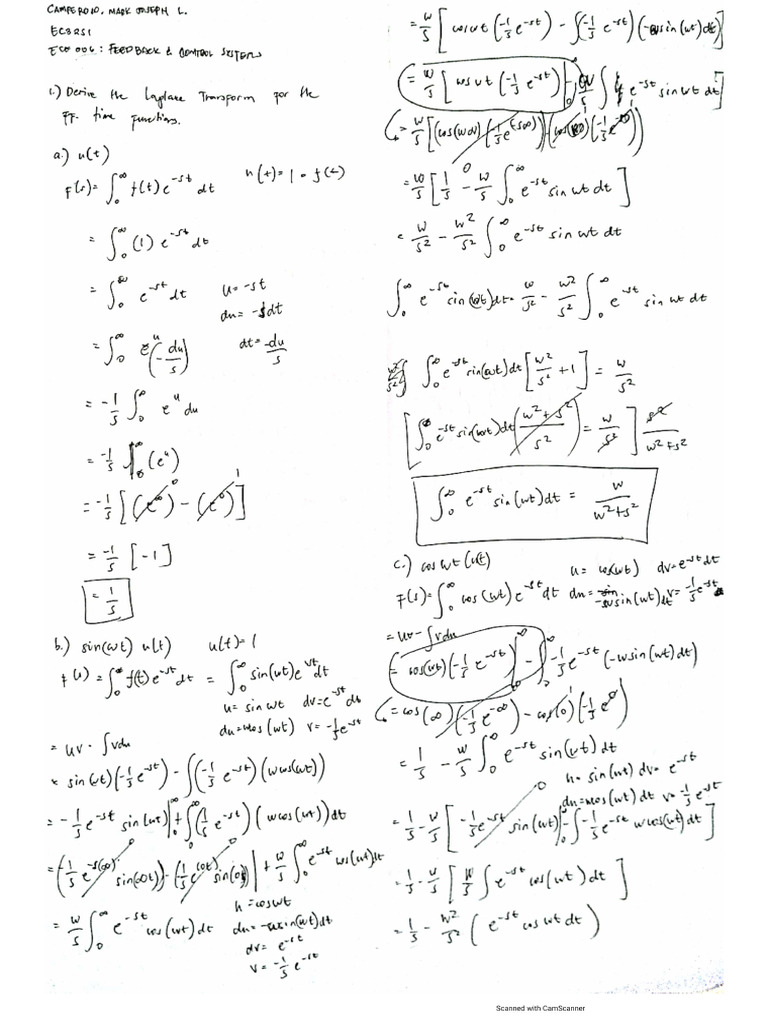 CAMPEROSO, MARK JOSEPH L.
ECB251
ECO 006 : FEEDBACK & CONTROL SYSTEMS
1.) Derive the Laplace Transform for the
ff. time functions.
a.) u(t)
F(s) = ∫₀^∞ f(t) e^-st dt u(t) = 1 = f(t)
= ∫₀^∞ (1) e^-st dt
= ∫₀^∞ e^-st dt u = -st
du = -sdt
= ∫₀^∞ e^u (-du/s) dt = -du/s
= -1/s ∫₀^∞ e^u du
= -1/s |₀^∞ (e^u)
= -1/s [(e^∞)^0 - (e^0)^1]
= -1/s [-1]
= 1/s
b.) sin(wt) u(t) u(t) = 1
f(s) = ∫₀^∞ f(t) e^-st dt = ∫₀^∞ sin(wt) e^-st dt
u = sin wt dv = e^-st dt
du = wcos(wt) v = -1/s e^-st
= uv - ∫vdu
= sin(wt)(-1/s e^-st) - ∫(-1/s e^-st)(wcos(wt))
= -1/s e^-st sin(wt)|₀^∞ + ∫₀^∞ (1/s e^-st)(wcos(wt))dt
= (-1/s e^-s(∞) sin(∞t)) - (-1/s e^(0t) sin(0)) | + w/s ∫₀^∞ e^-st cos(wt)dt
= w/s ∫₀^∞ e^-st cos(wt) dt
u = coswt
du = -wsin(wt)dt
dv = e^-st
v = -1/s e^-st
= w/s [cos wt (-1/s e^-st) - ∫(-1/s e^-st)(-wsin(wt)dt)]
= w/s [cos wt (-1/s e^-st)|₀^∞ - w/s ∫ e^-st sin wt dt]
= w/s [(cos(w∞)(-1/s e^(-s∞))) - (cos(0)(-1/s e^-0))
= w/s [1/s - w/s ∫₀^∞ e^-st sin wt dt]
= w/s² - w²/s² ∫₀^∞ e^-st sin wt dt
∫₀^∞ e^-st sin(wt)dt = w/s² - w²/s² ∫₀^∞ e^-st sin wt dt
∫₀^∞ e^-st sin(wt)dt [w²/s² + 1] = w/s²
[∫₀^∞ e^-st sin(wt)dt (w² + s²/s²) = w/s²] s²/w²+s²
∫₀^∞ e^-st sin(wt)dt = w/w²+s²
c.) cos wt (u(t)) u = cos(wt) dv = e^-st dt
F(s) = ∫₀^∞ cos(wt) e^-st dt du = -wsin(wt)dt v = -1/s e^-st
= uv - ∫vdu
= cos(wt)(-1/s e^-st)|₀^∞ - ∫₀^∞ -1/s e^-st (-wsin(wt)dt)
= cos(∞)(-1/s e^-∞) - cos(0)(-1/s e^0)
= 1/s - w/s ∫₀^∞ e^-st sin(wt)dt
u = sin(wt) dv = e^-st
du = wcos(wt)dt v = -1/s e^-st
= 1/s - w/s [-1/s e^-st sin(wt)|₀^∞ - ∫ -1/s e^-st wcos(wt)dt]
= 1/s - w/s [w/s ∫ e^-st cos(wt)dt]
= 1/s - w²/s² (e^-st cos wt dt)
Scanned with CamScanner